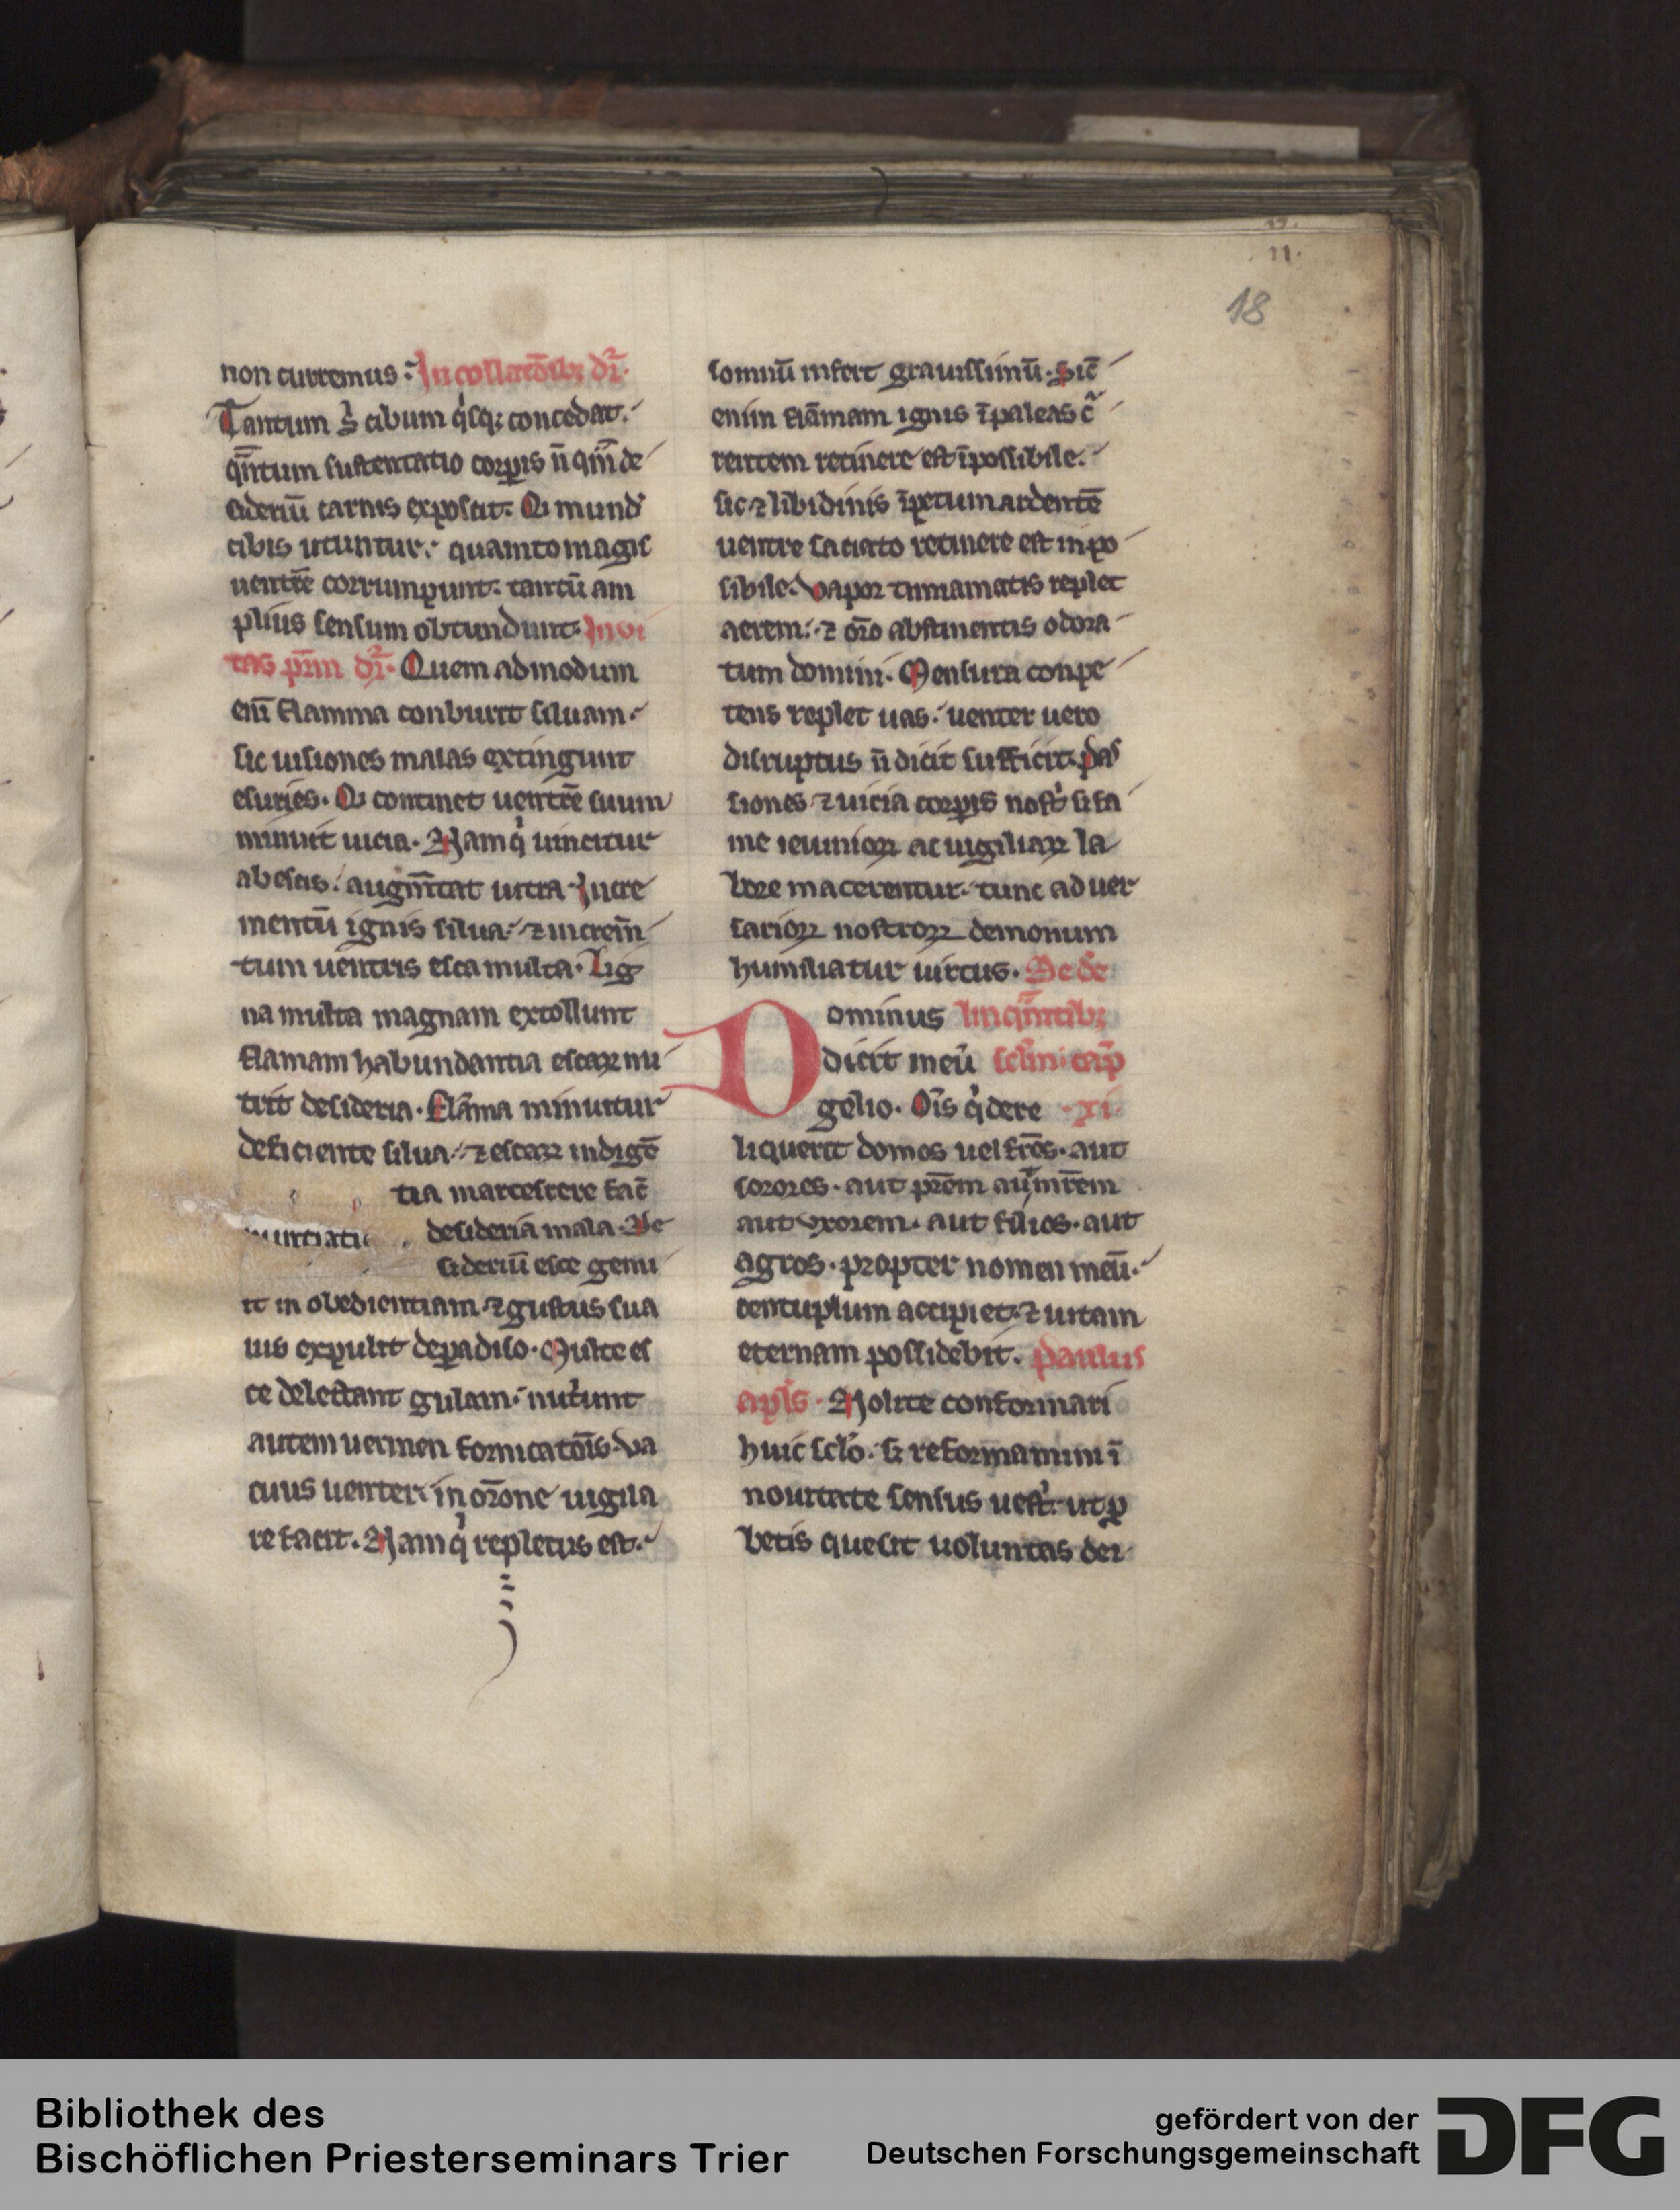 11.
18
non curremus: In collatōībꝫ dr̄.
Tantum s̄ cibum q̇sqꝫ concedat.
qn̄tum sustentatio corꝑis n̄ qm̄ de
sideriū carnis exposcit. Qi mund̾
cibis utuntur. quamto magis
uentrē corrumpunt. tantū am
plius sensum obtundunt. In ui
tas pr̄m dr̄. Quem admodum
enī flamma conburit siluam.
sic uisiones malas extingunt
esuries. Qi continet uentrē suum
minuit uicia. Namq̇ uincitur
ab escis. augm̄tat uicia. Incre
mentū ignis silua. ⁊ increm̄
tum uentris esca multa. Lig
na multa magnam extollunt
flamam habundantia escaꝝ nu
trit desideria. Flāma minuitur
deficiente silua. ⁊ escaꝝ indigē
tia marcescere fac̄
desideria mala. De
sideriū esce genu
it in obedientiam ⁊ gustus sua
uis expulit de paradiso. Multe es
ce delectant gulam. nut̾unt
autem uermen fornicatōis. Va
cuus uenter. in orōne uigila
re facit. Namq̇ repletus est.
somnū infert grauissimū. Sic̄
enim flāmam ignis ī paleas c̾
rentem retinere est īpossibile.
sic ⁊ libidinis īpetum ardentē
uentre saciato retinere est inpo
sibile. Vapor timiamatis replet
aerem. ⁊ orō abstinentis odora
tum domini. Mensura conpe
tens replet uas. uenter uero
disruptus n̄ dicit sufficit. Pas
siones ⁊ uicia corꝑis nost̾ si fa
me ieiunioꝝ ac uigiliaꝝ la
bore macerentur. tunc aduer
sarioꝝ nostroꝝ demonum
humiliatur uirtus. De de
Dominus linqn̄tibꝫ
dicit in eū sclm̄. cap̄
gelio. Om̄s q̇ dere .xi.
liquerit domos uel fr̄es. aut
sorores. aut pr̄em aut mr̄em
aut uxorem. aut filios. aut
agros. propter nomen meū.
centuplum accipiet. ⁊ uitam
eternam possidebit. Paulus
apl̄s. Nolite conformari
huic sclo̅. sꝫ reformamini ī
nouitate sensus uest̾. ut ꝓ
betis que sit uoluntas dei
Bibliothek des
Bischöflichen Priesterseminars Trier
gefördert von der
Deutschen Forschungsgemeinschaft
DFG